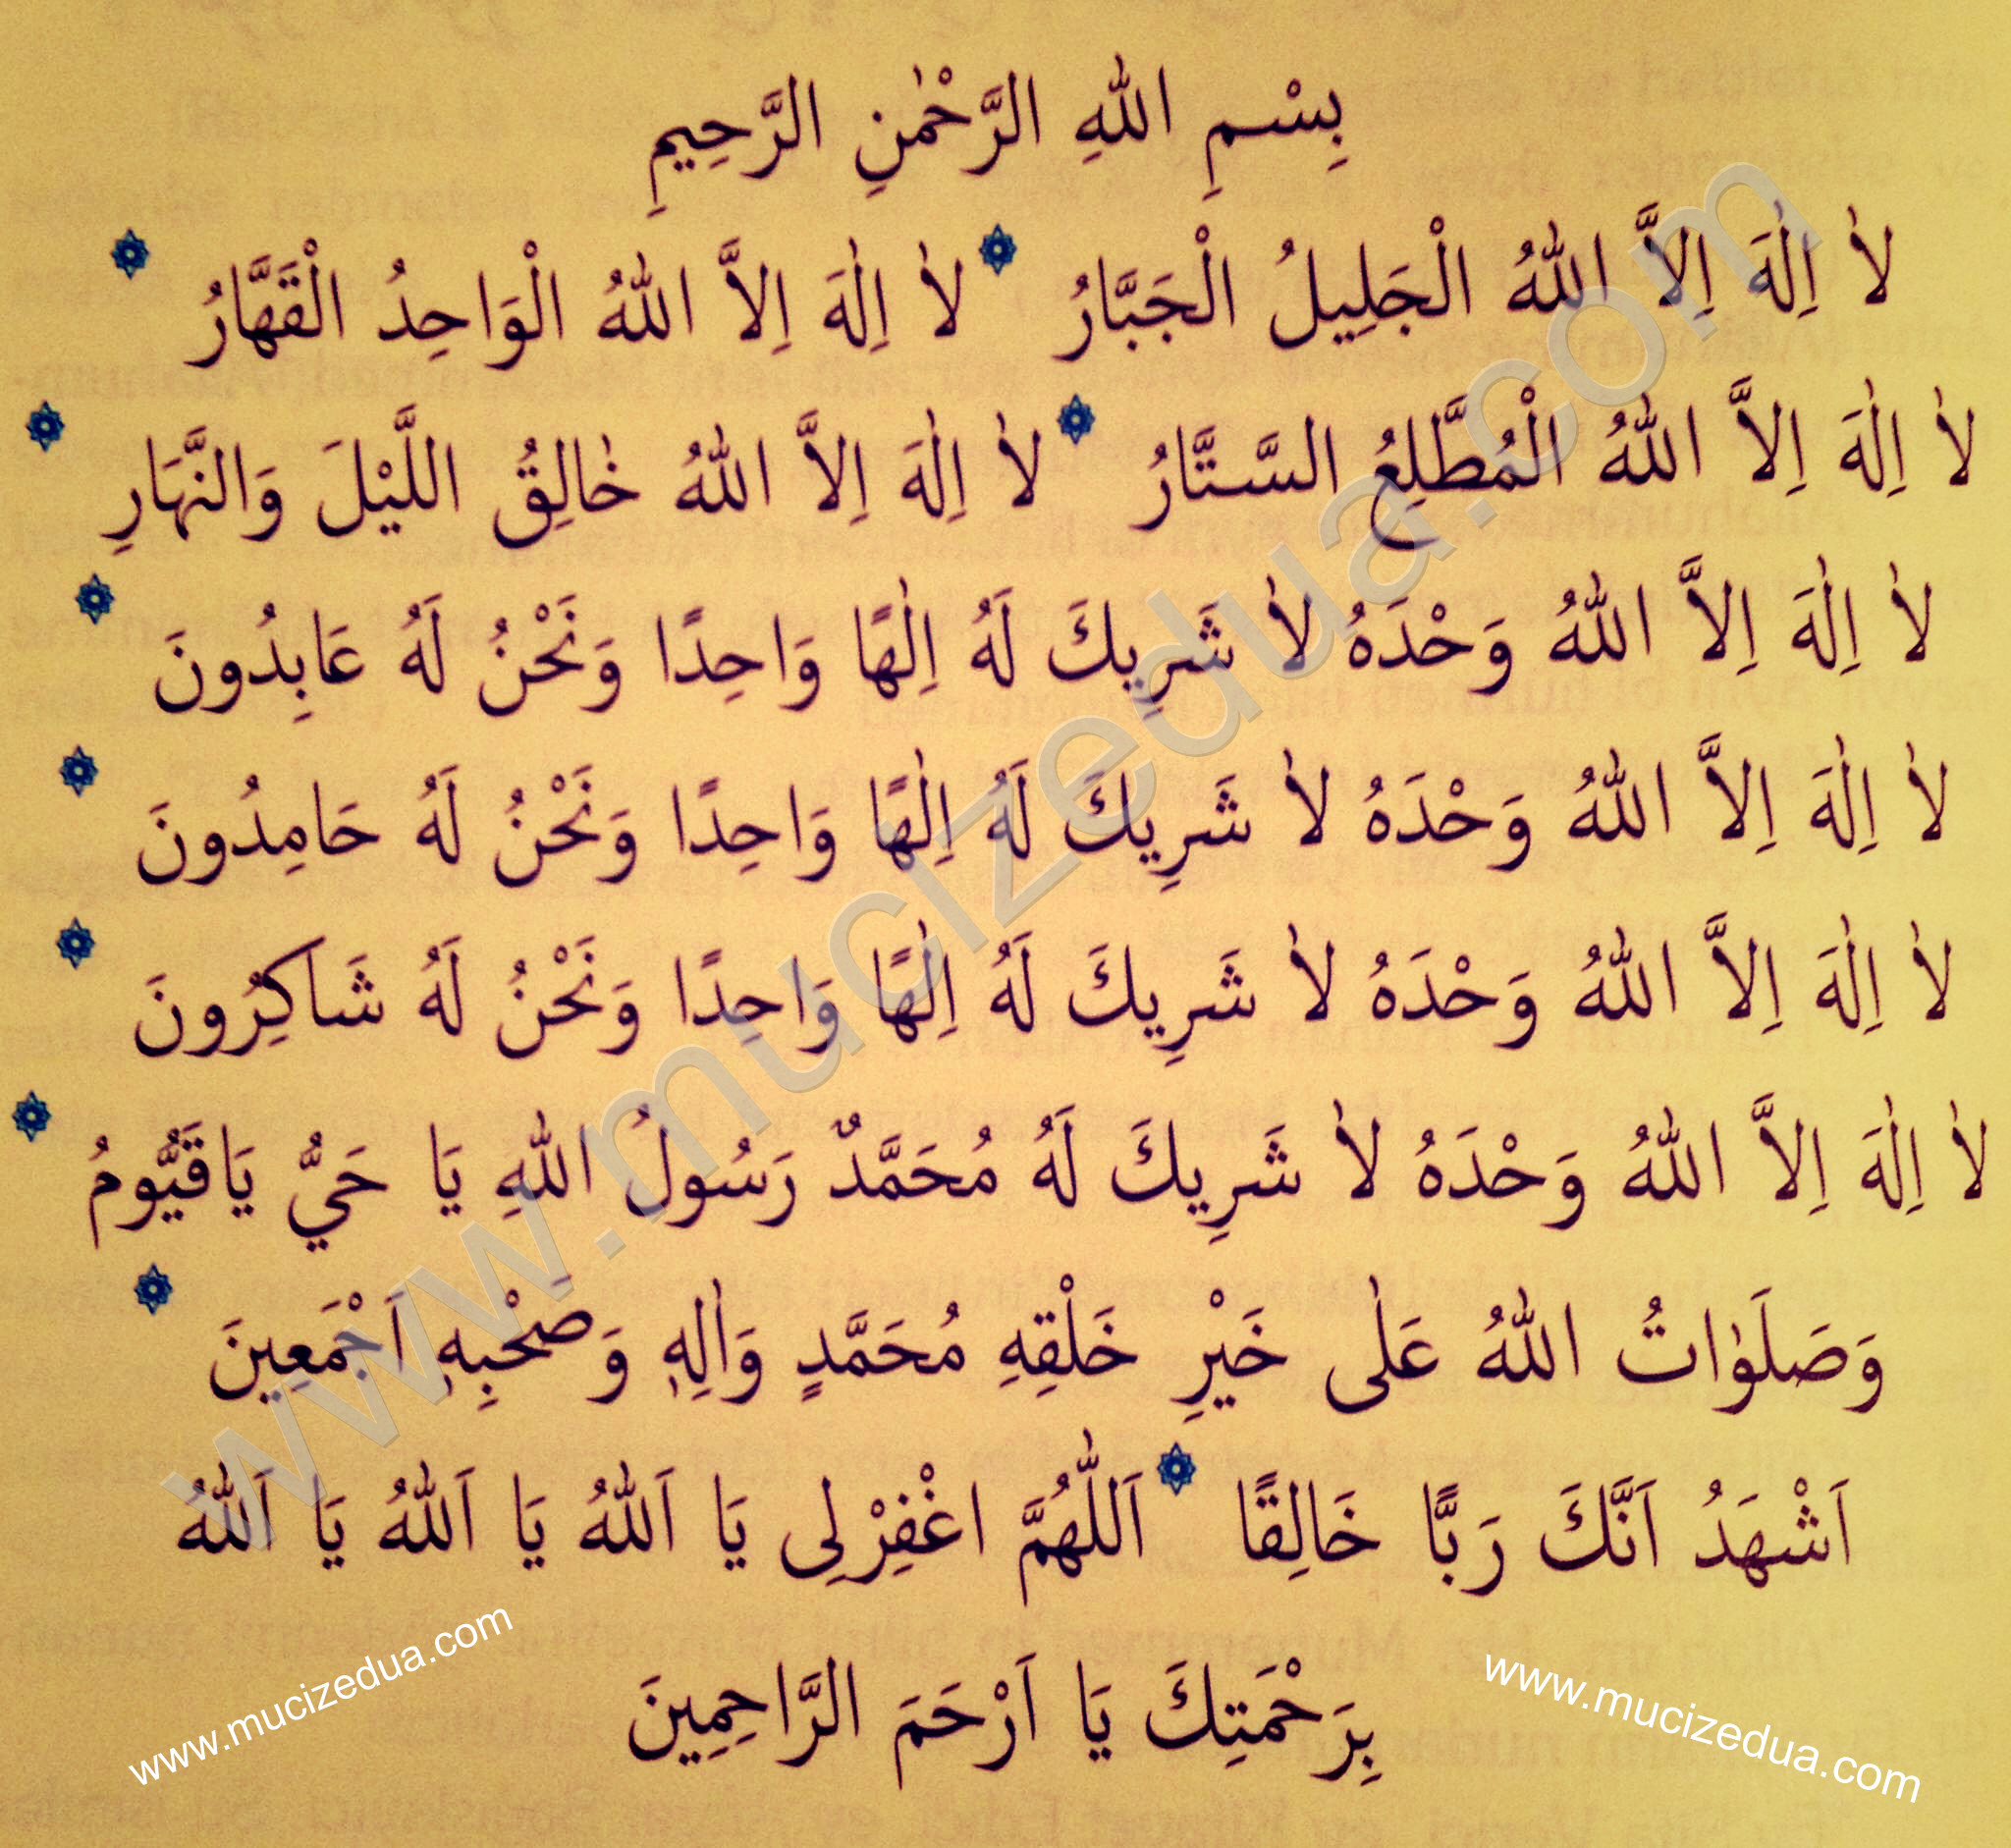 بِسْمِ اللهِ الرَّحْمٰنِ الرَّحِيمِ
لاٰ اِلٰهَ اِلاَّ اللهُ الْجَلِيلُ الْجَبَّارُ ۞ لاٰ اِلٰهَ اِلاَّ اللهُ الْوَاحِدُ الْقَهَّارُ ۞
لاٰ اِلٰهَ اِلاَّ اللهُ الْمُطَّلِعُ السَّتَّارُ ۞ لاٰ اِلٰهَ اِلاَّ اللهُ خٰالِقُ اللَّيْلَ وَالنَّهَارِ ۞
لاٰ اِلٰهَ اِلاَّ اللهُ وَحْدَهُ لاٰ شَرِيكَ لَهُ اِلٰهًا وَاحِدًا وَنَحْنُ لَهُ عَابِدُونَ ۞
لاٰ اِلٰهَ اِلاَّ اللهُ وَحْدَهُ لاٰ شَرِيكَ لَهُ اِلٰهًا وَاحِدًا وَنَحْنُ لَهُ حَامِدُونَ ۞
لاٰ اِلٰهَ اِلاَّ اللهُ وَحْدَهُ لاٰ شَرِيكَ لَهُ اِلٰهًا وَاحِدًا وَنَحْنُ لَهُ شَاكِرُونَ ۞
لاٰ اِلٰهَ اِلاَّ اللهُ وَحْدَهُ لاٰ شَرِيكَ لَهُ مُحَمَّدٌ رَسُولُ اللهِ يَا حَيُّ يَاقَيُّومُ ۞
وَصَلَوٰاتُ اللهُ عَلٰى خَيْرِ خَلْقِهِ مُحَمَّدٍ وَاٰلِهٖ وَصَحْبِهٖ اَجْمَعِينَ ۞
اَشْهَدُ اَنَّكَ رَبًّا خَالِقًا ۞ اَللّٰهُمَّ اغْفِرْلِى يَا اَللهُ يَا اَللهُ يَا اَللهُ
بِرَحْمَتِكَ يَا اَرْحَمَ الرَّاحِمِينَ
www.mucizedua.com
www.mucizedua.com
www.mucizedua.com